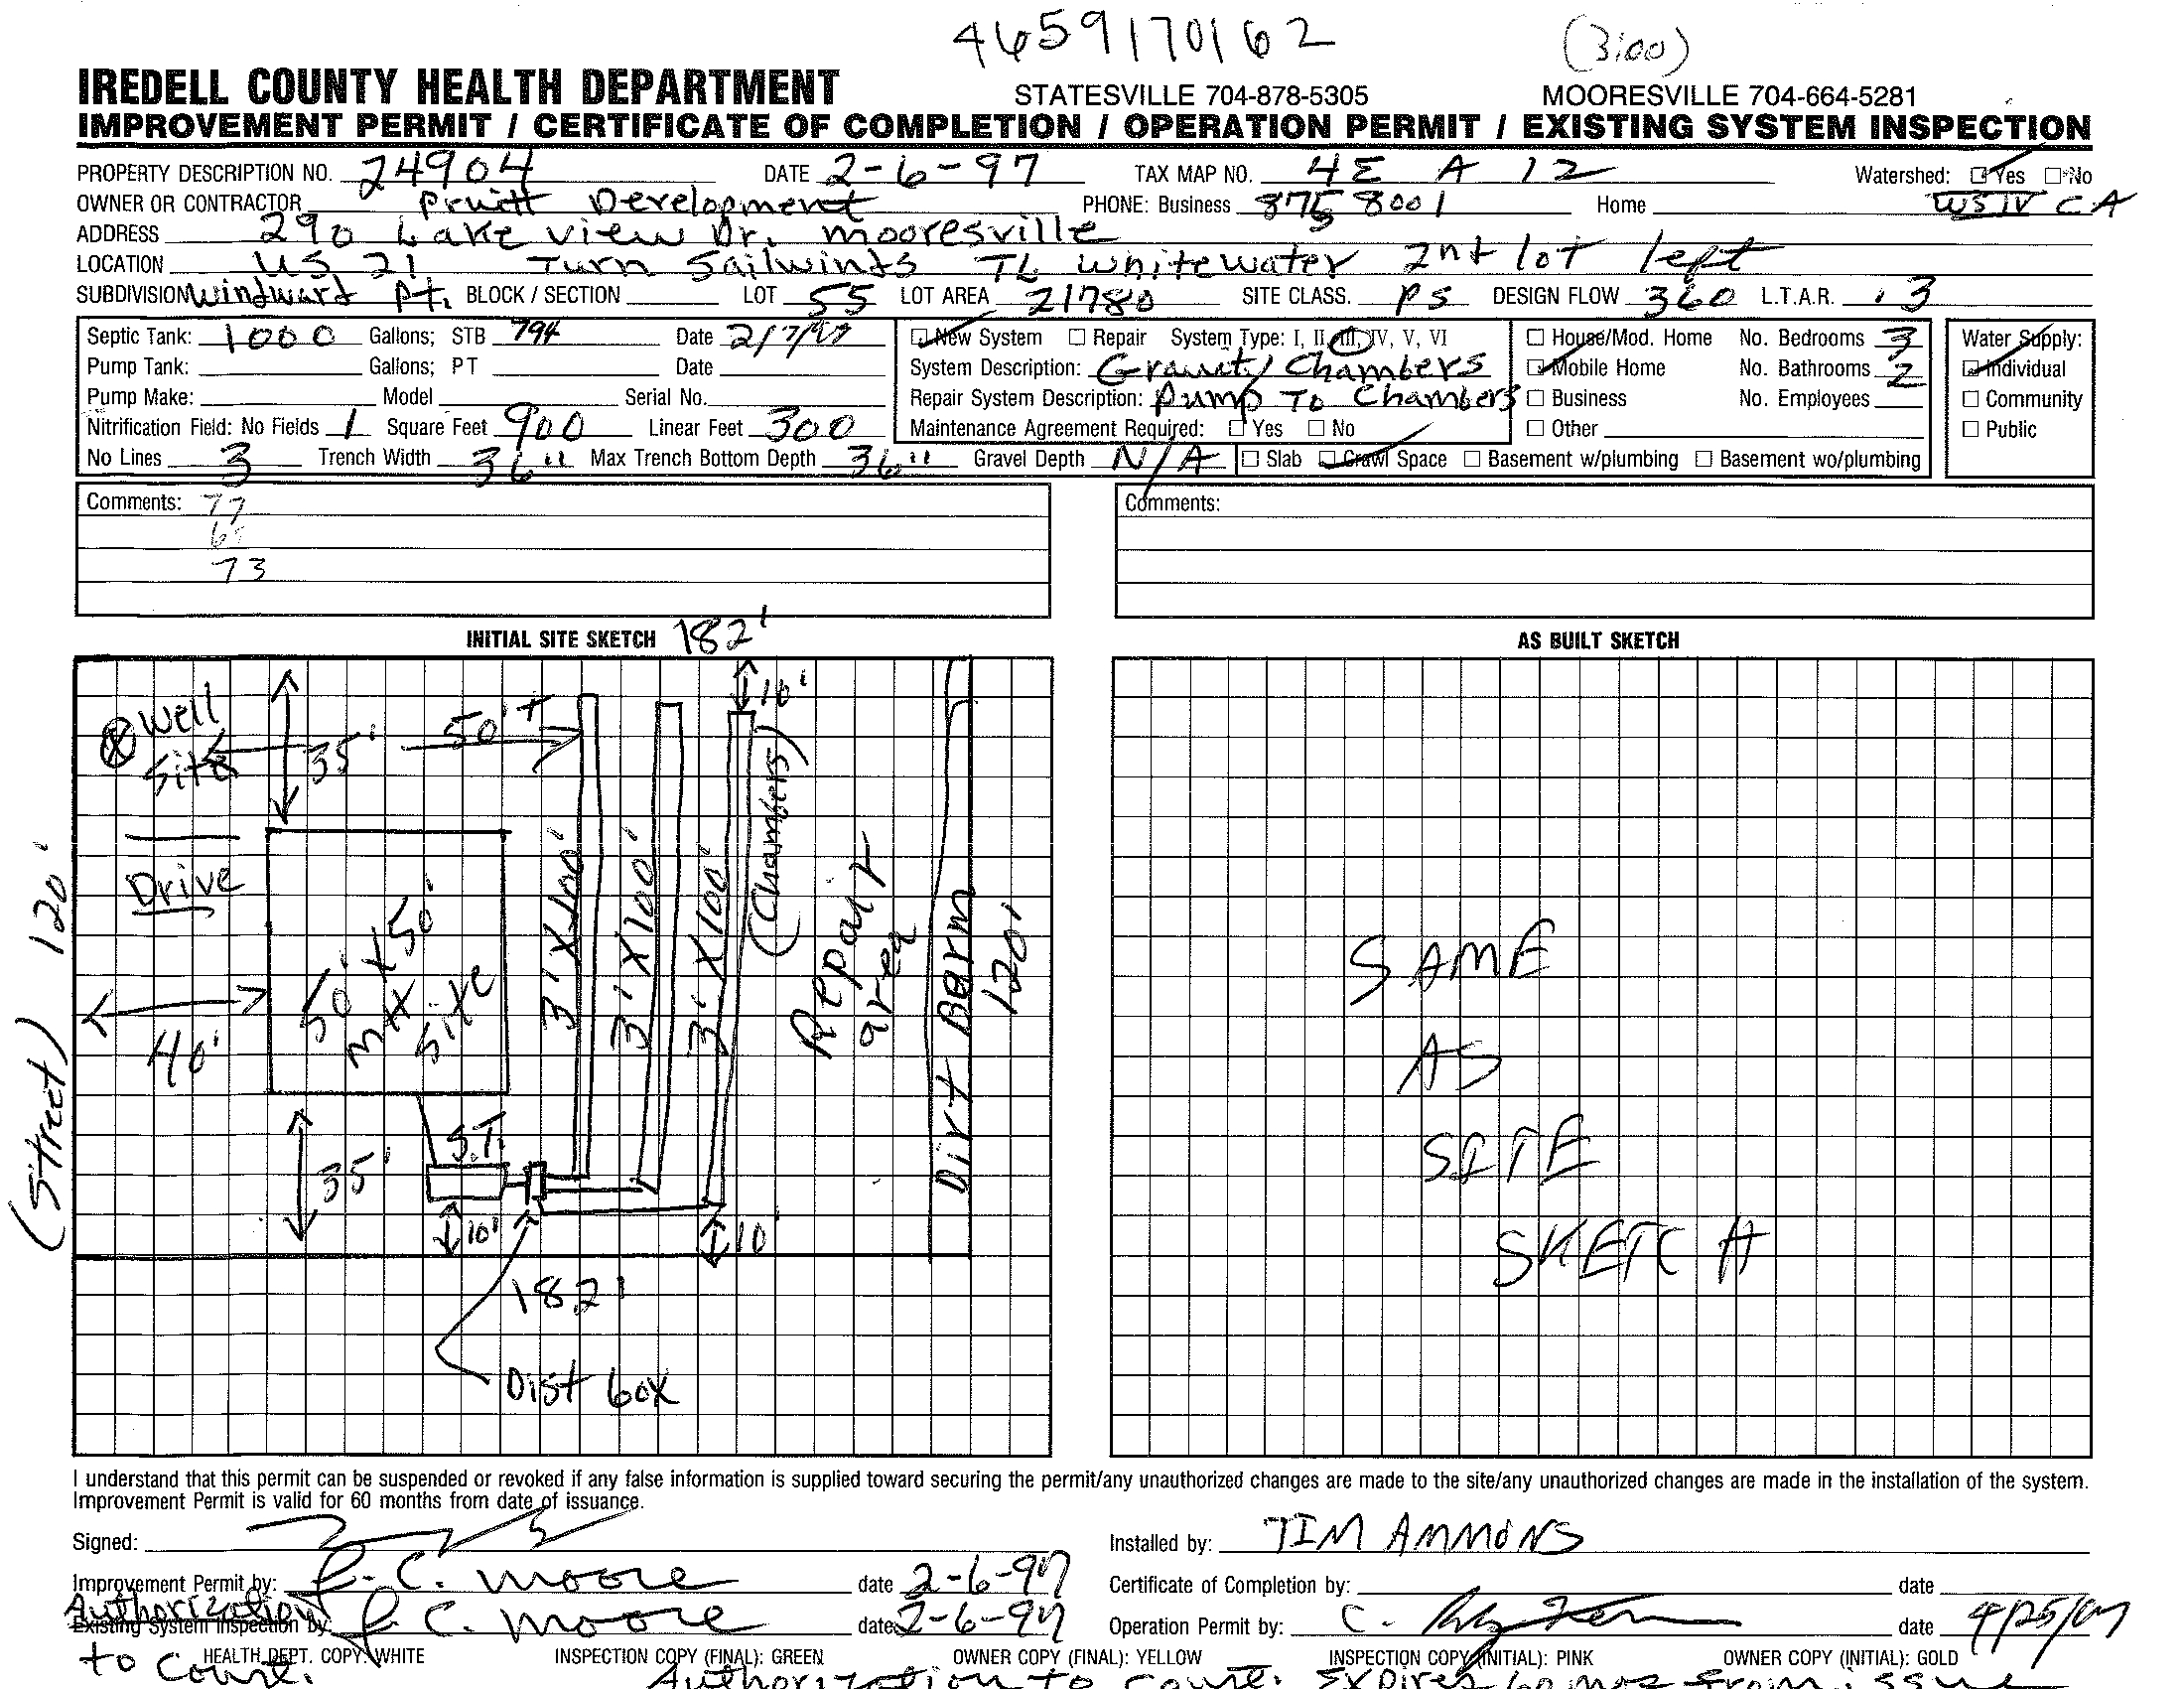 4659170162 (3:00)
IREDELL COUNTY HEALTH DEPARTMENT STATESVILLE 704-878-5305 MOORESVILLE 704-664-5281
IMPROVEMENT PERMIT / CERTIFICATE OF COMPLETION / OPERATION PERMIT / EXISTING SYSTEM INSPECTION
PROPERTY DESCRIPTION NO. 24904 DATE 2-6-97 TAX MAP NO. 4E A 12 Watershed: ☑ Yes ☐ No
OWNER OR CONTRACTOR Pruitt Development PHONE: Business 875 8001 Home WS IV CA
ADDRESS 290 Lake view Dr. mooresville
LOCATION US 21 Turn Sailwinds TL Whitewater 2nd lot left
SUBDIVISION Windward Pt. BLOCK / SECTION LOT 55 LOT AREA 21780 SITE CLASS. PS DESIGN FLOW 360 L.T.A.R. .3
Septic Tank: 1000 Gallons; STB 794 Date 2/7/97 ☑ New System ☐ Repair System Type: I, II, III, IV, V, VI ☐ House/Mod. Home No. Bedrooms 3 Water Supply:
Pump Tank: Gallons; PT Date System Description: Gravity Chambers ☑ Mobile Home No. Bathrooms 2 ☑ Individual
Pump Make: Model Serial No. Repair System Description: Pump To Chambers ☐ Business No. Employees ☐ Community
Nitrification Field: No Fields 1 Square Feet 900 Linear Feet 300 Maintenance Agreement Required: ☐ Yes ☐ No ☐ Other ☐ Public
No Lines 3 Trench Width 36" Max Trench Bottom Depth 36" Gravel Depth N/A ☐ Slab ☑ Crawl Space ☐ Basement w/plumbing ☐ Basement wo/plumbing
Comments: 77
73
Comments:
INITIAL SITE SKETCH 182'
Well
Site
35'
50'+
10'
Drive
(Street) 120'
40'
50' x 50'
MH
Site
3' X 100'
3' X 100'
3' X 100'
(Chambers)
Repair
area
Dirt Barm
120'
S.T.
35'
10'
10'
182'
Dist box
AS BUILT SKETCH
SAME
AS
SITE
SKETCH
I understand that this permit can be suspended or revoked if any false information is supplied toward securing the permit/any unauthorized changes are made to the site/any unauthorized changes are made in the installation of the system.
Improvement Permit is valid for 60 months from date of issuance.
Signed: Installed by: TIM AMMONS
Improvement Permit by: R. C. Moore date 2-6-97 Certificate of Completion by: date
Authorization
Existing System Inspection by: R. C. Moore date 2-6-97 Operation Permit by: date 4/25/97
to Const. HEALTH DEPT. COPY: WHITE INSPECTION COPY (FINAL): GREEN OWNER COPY (FINAL): YELLOW INSPECTION COPY (INITIAL): PINK OWNER COPY (INITIAL): GOLD
Authorization to const. Expires 60 mos from issue